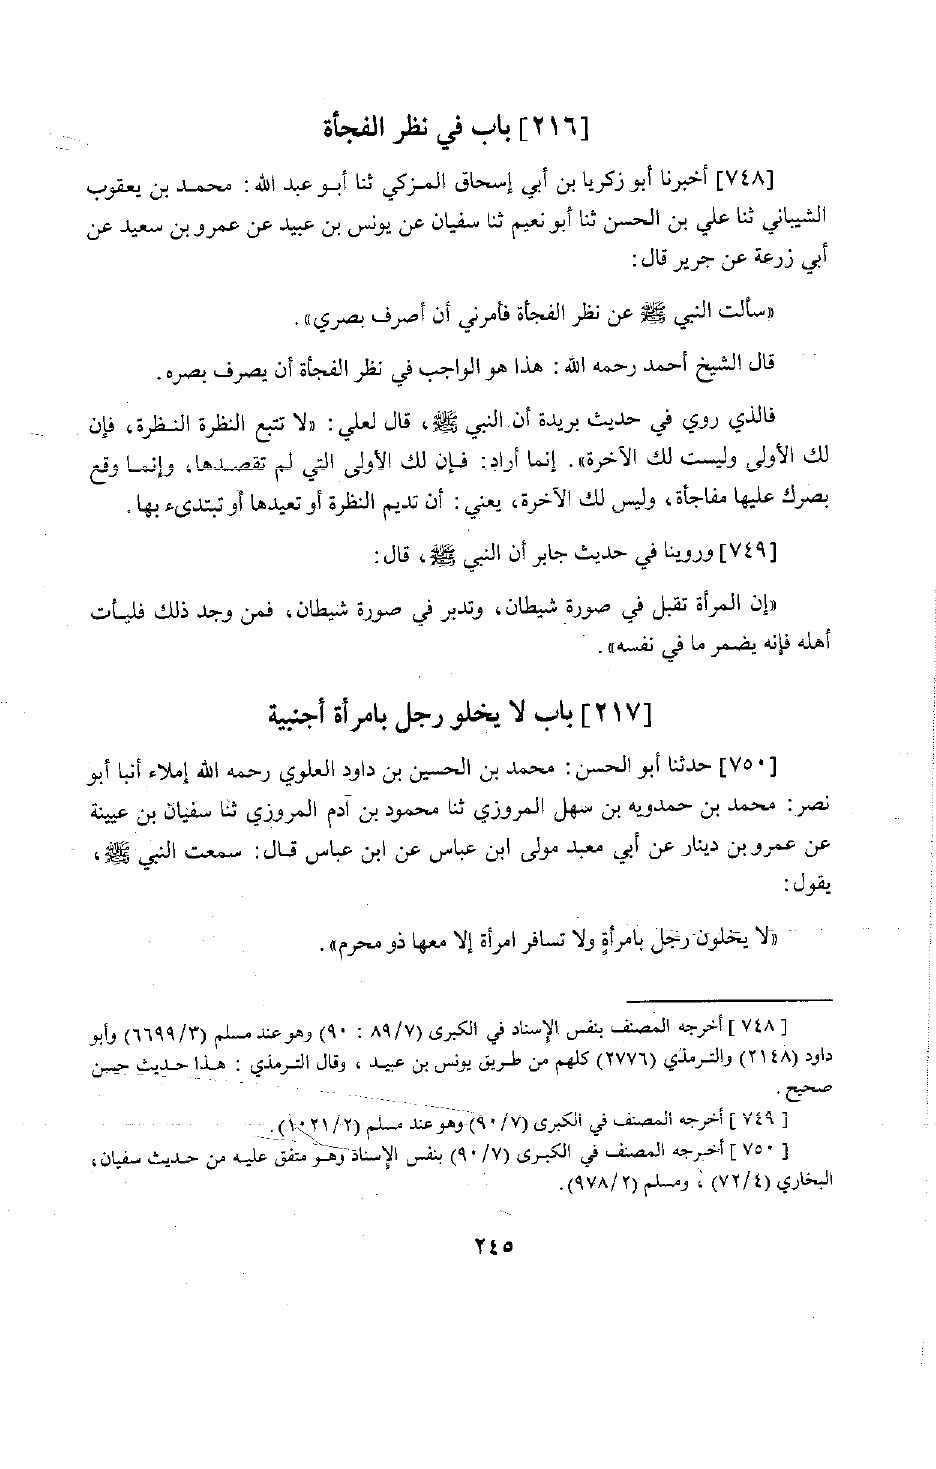 [٢١٦] باب في نظر الفجأة
[٧٤٨] أخبرنا أبو زكريا بن أبي إسحاق المزكي ثنا أبو عبد الله : محمد بن يعقوب
الشيباني ثنا علي بن الحسن ثنا أبو نعيم ثنا سفيان عن يونس بن عبيد عن عمرو بن سعيد عن
أبي زرعة عن جرير قال :
«سألت النبي ﷺ عن نظر الفجأة فأمرني أن أصرف بصري» .
قال الشيخ أحمد رحمه الله : هذا هو الواجب في نظر الفجأة أن يصرف بصره .
فالذي روي في حديث بريدة أن النبي ﷺ ، قال لعلي : «لا تتبع النظرة النظرة ، فإن
لك الأولى وليست لك الآخرة» . إنما أراد : فإن لك الأولى التي لم تقصدها ، وإنما وقع
بصرك عليها مفاجأة ، وليس لك الآخرة ، يعني : أن تديم النظرة أو تعيدها أو تبتدىء بها .
[٧٤٩] وروينا في حديث جابر أن النبي ﷺ ، قال :
«إن المرأة تقبل في صورة شيطان ، وتدبر في صورة شيطان ، فمن وجد ذلك فليأت
أهله فإنه يضمر ما في نفسه» .
[٢١٧] باب لا يخلو رجل بامرأة أجنبية
[٧٥٠] حدثنا أبو الحسن : محمد بن الحسين بن داود العلوي رحمه الله إملاء أنبا أبو
نصر : محمد بن حمدويه بن سهل المروزي ثنا محمود بن آدم المروزي ثنا سفيان بن عيينة
عن عمرو بن دينار عن أبي معبد مولى ابن عباس عن ابن عباس قال : سمعت النبي ﷺ ،
يقول :
«لا يخلون رجل بامرأةٍ ولا تسافر امرأة إلا معها ذو محرم» .
[٧٤٨] أخرجه المصنف بنفس الإسناد في الكبرى (٨٩/٧ : ٩٠) وهو عند مسلم (٦٦٩٩/٣) وأبو
داود (٢١٤٨) والترمذي (٢٧٧٦) كلهم من طريق يونس بن عبيد ، وقال الترمذي : هذا حديث حسن
صحيح .
[٧٤٩] أخرجه المصنف في الكبرى (٩٠/٧) وهو عند مسلم (١٠٢١/٢) .
[٧٥٠] أخرجه المصنف في الكبرى (٩٠/٧) بنفس الإسناد وهو متفق عليه من حديث سفيان ،
البخاري (٧٢/٤) ، ومسلم (٩٧٨/٢) .
٢٤٥